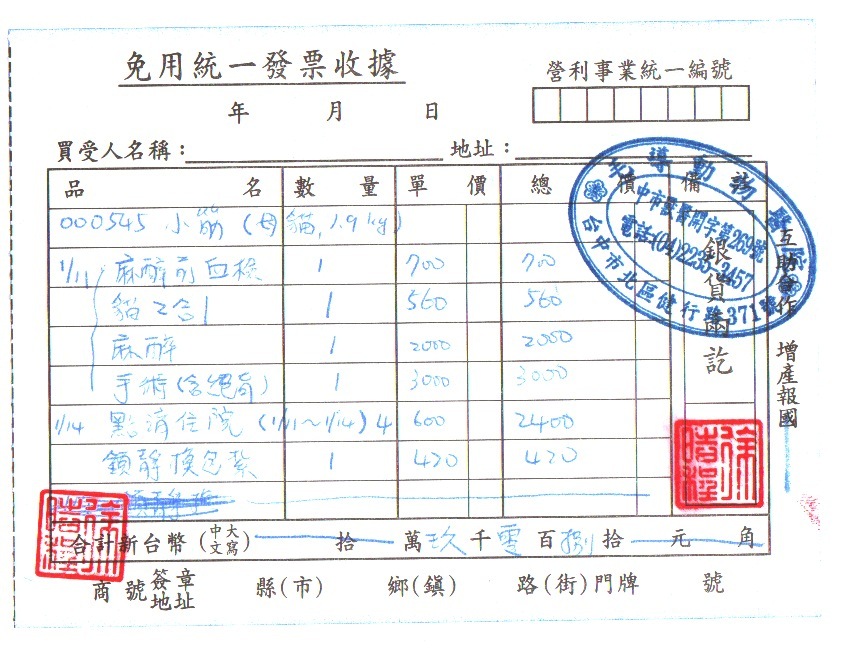 免用統一發票收據
營利事業統一編號
年 月 日
買受人名稱： 地址：
品 名 數 量 單 價 總 價 備
000545 小筋 (母貓, 1.9kg)
1/11 麻醉前血檢 1 700 700
貓2合1 1 560 560
麻醉 1 2000 2000
手術(含絕育) 1 3000 3000
1/14 點滴住院 (1/11~1/14) 4 600 2400
鎮靜換包紮 1 420 420
合計新台幣 (中文大寫) 拾 萬 玖 千 零 百 捌 拾 元 角
商號簽章地址 縣(市) 鄉(鎮) 路(街)門牌 號
銀貨兩訖
互助合作 增產報國
中市獸醫開字第269號
電話:(04)2235-3457
台中市北區健行路371號